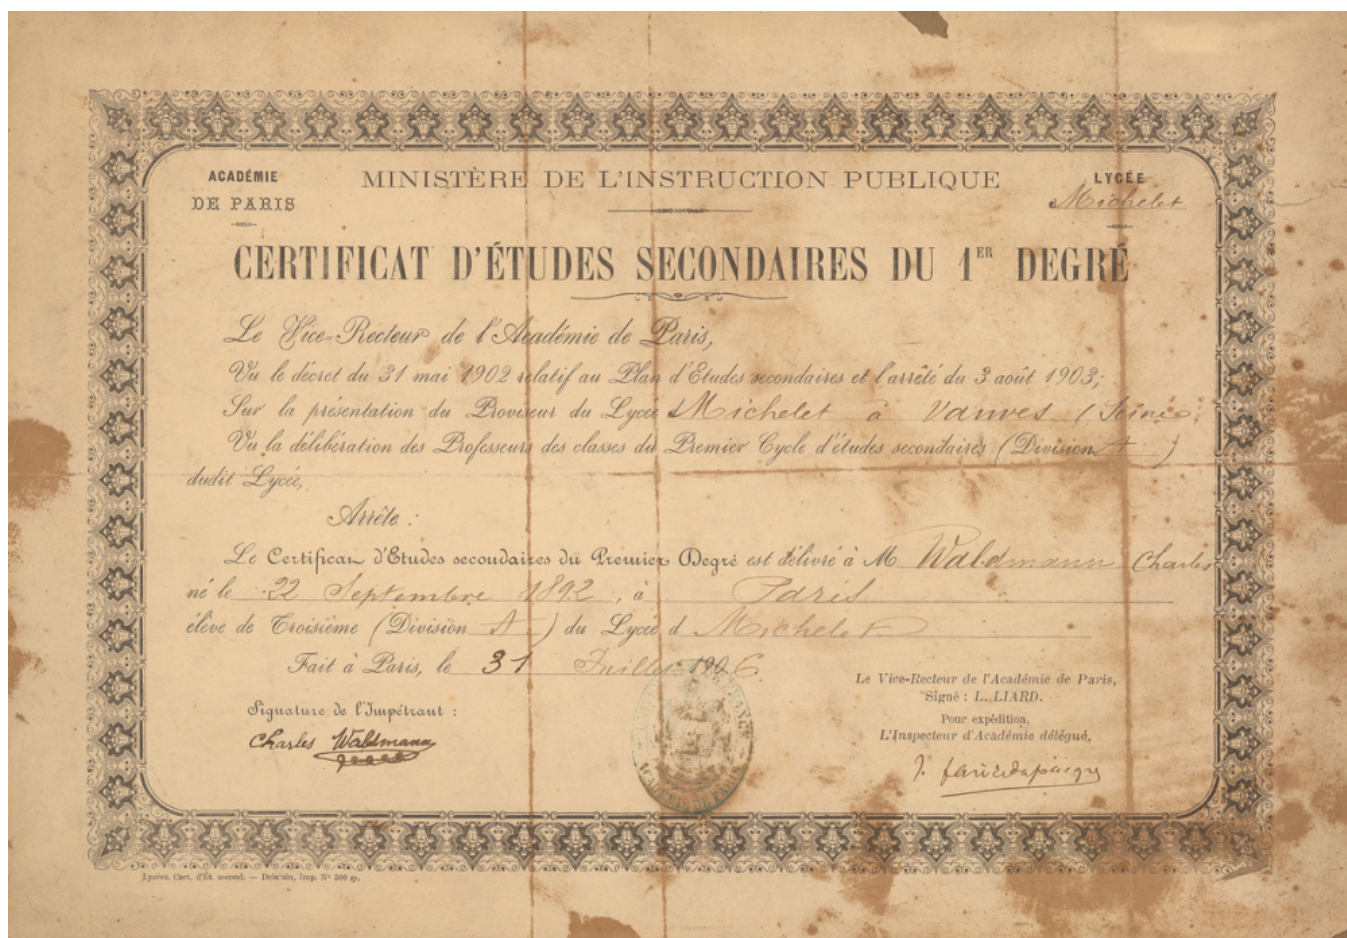 ACADÉMIE
DE PARIS
MINISTÈRE DE L'INSTRUCTION PUBLIQUE
LYCÉE
Michelet
CERTIFICAT D'ÉTUDES SECONDAIRES DU 1ER DEGRÉ
Le Vice-Recteur de l'Académie de Paris,
Vu le décret du 31 mai 1902 relatif au Plan d'Etudes secondaires et l'arrêté du 3 août 1903;
Sur la présentation du Proviseur du Lycée Michelet à Vanves (Seine)
Vu la délibération des Professeurs des classes du Premier Cycle d'études secondaires (Division A)
dudit Lycée,
Arrête :
Le Certificat d'Etudes secondaires du Premier Degré est délivré à M Waldmann Charles
né le 22 Septembre 1892, à Paris
élève de Troisième (Division A) du Lycée d Michelet
Fait à Paris, le 31 Juillet 1906.
Le Vice-Recteur de l'Académie de Paris,
Signé : L. LIARD.
Signature de l'Impétrant :
Pour expédition,
L'Inspecteur d'Académie délégué,
Charles Waldmann
ACADÉMIE DE PARIS
Lycées. Cert. d'Ét. second. — Imp. N° 300